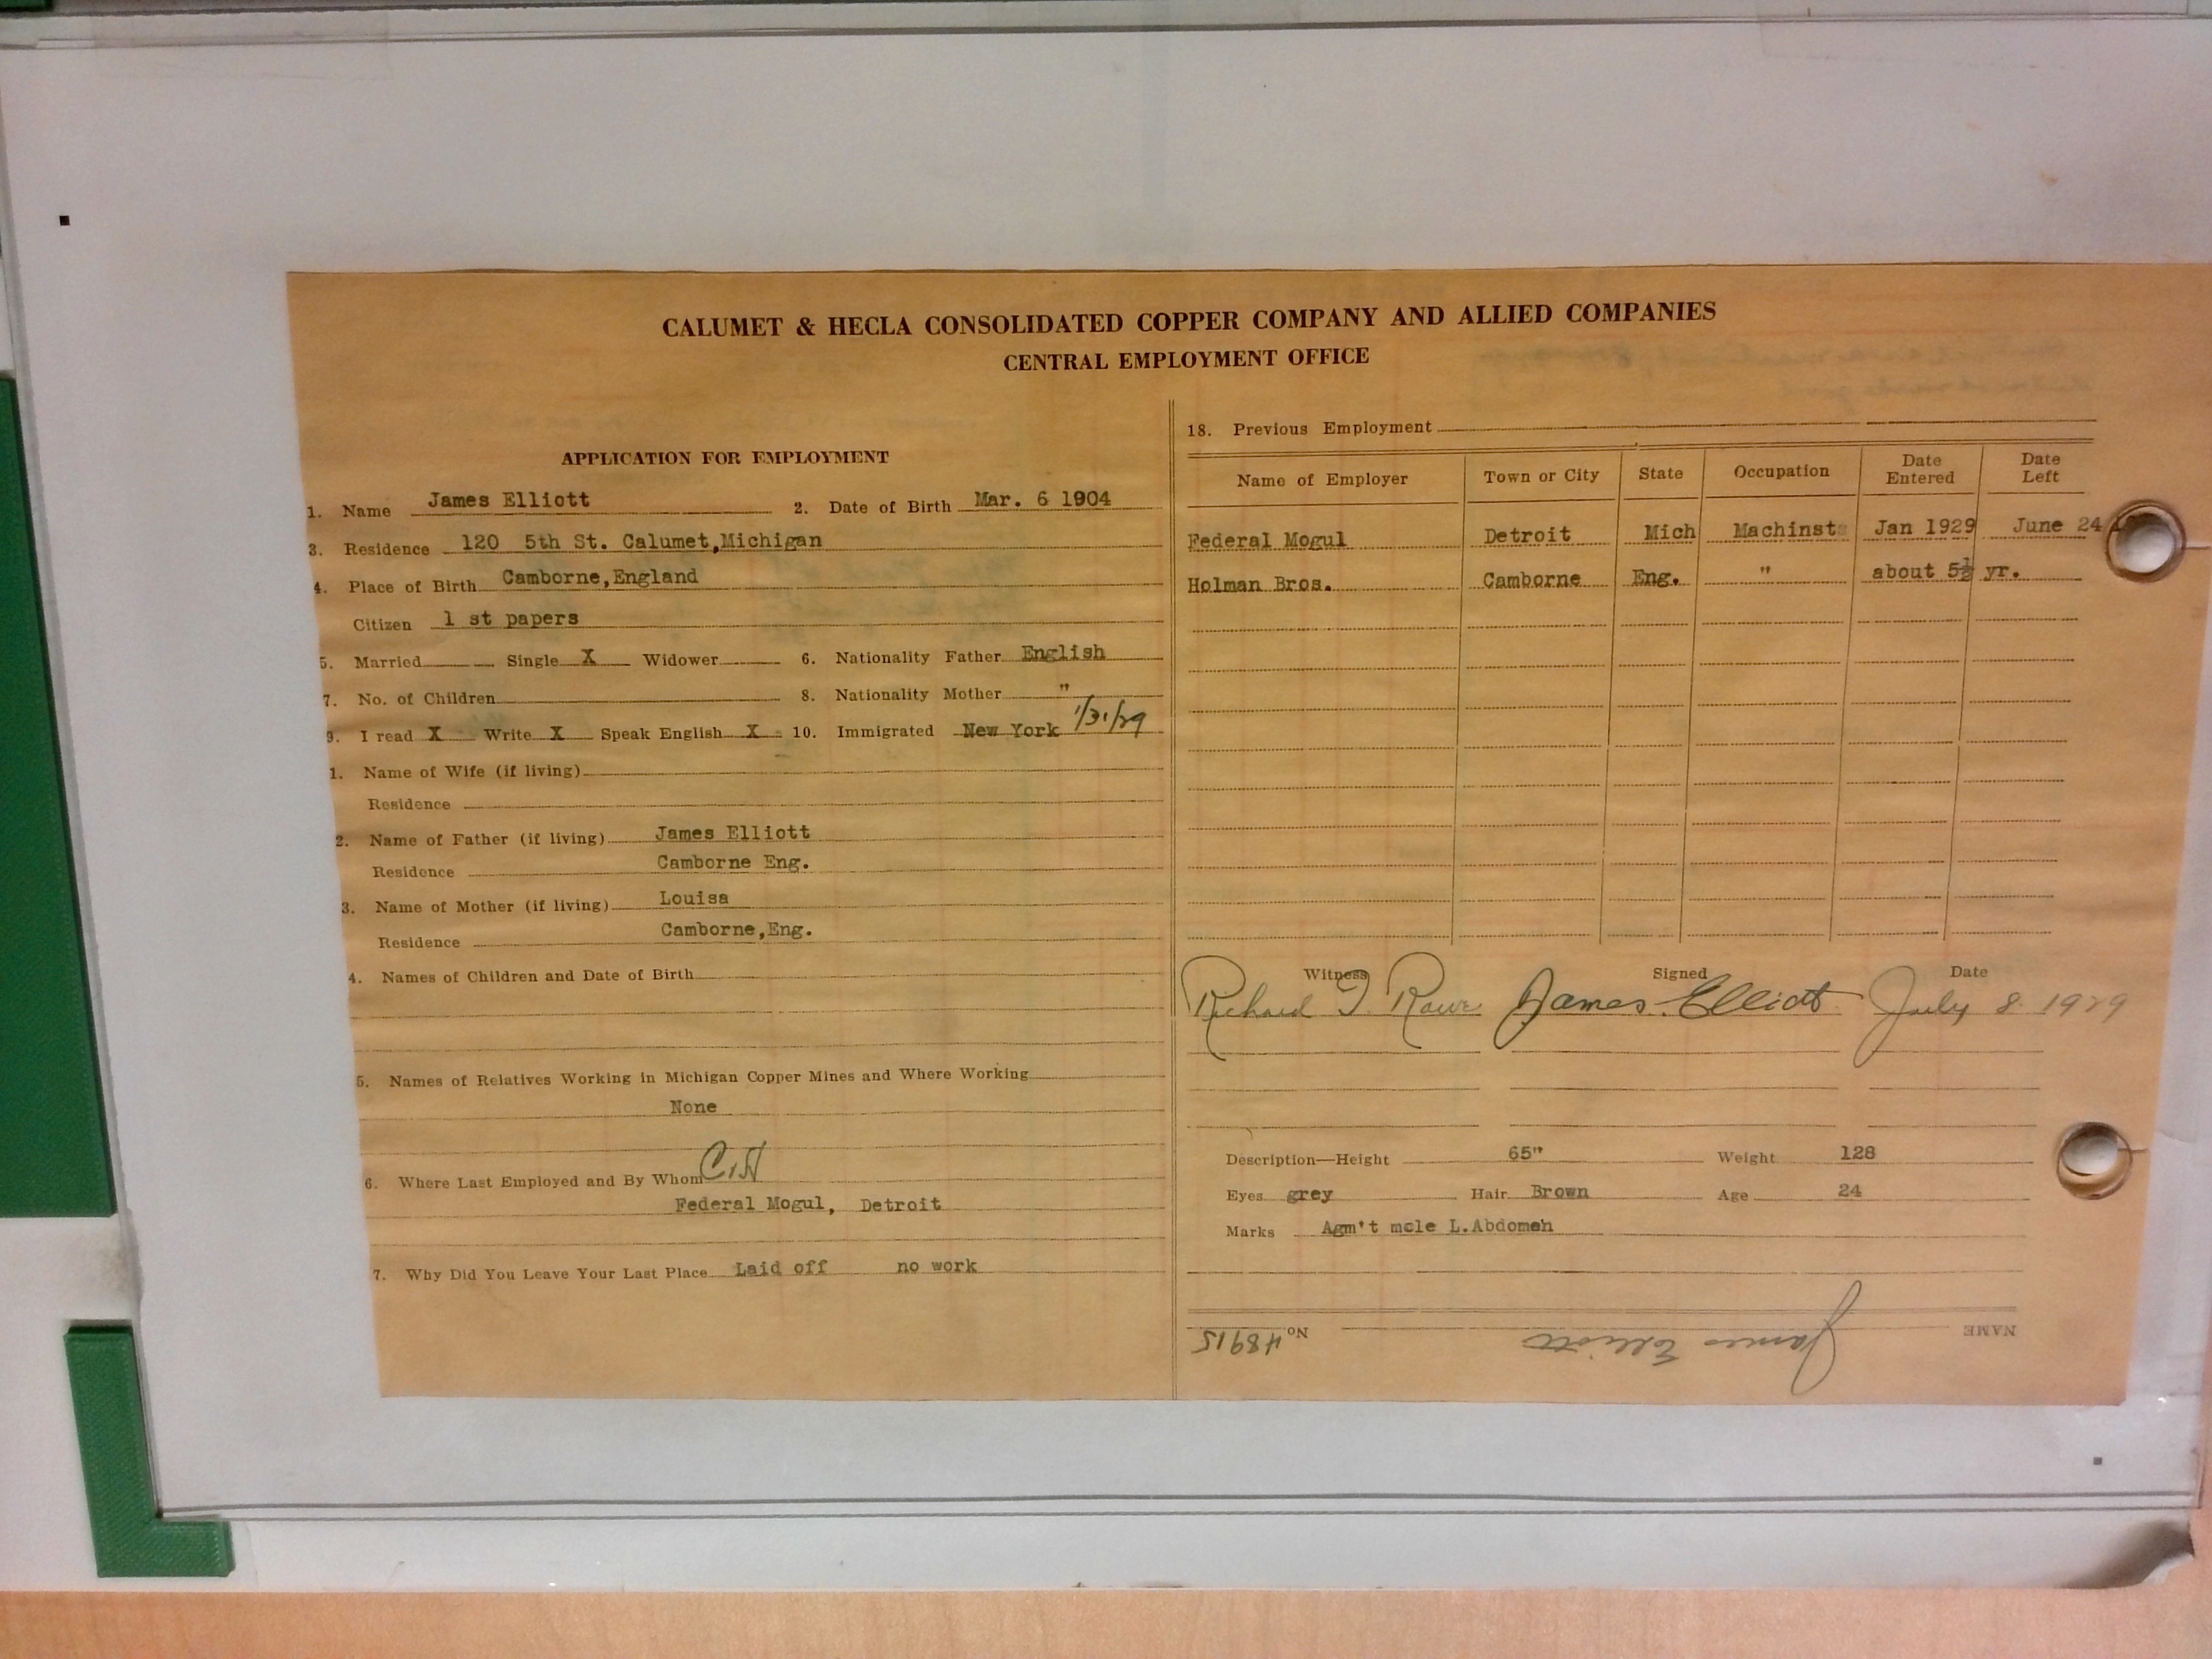 CALUMET & HECLA CONSOLIDATED COPPER COMPANY AND ALLIED COMPANIES
CENTRAL EMPLOYMENT OFFICE
APPLICATION FOR EMPLOYMENT
1. Name James Elliott 2. Date of Birth Mar. 6 1904
3. Residence 120 5th St. Calumet,Michigan
4. Place of Birth Camborne,England
Citizen 1 st papers
5. Married Single X Widower 6. Nationality Father English
7. No. of Children 8. Nationality Mother "
9. I read X Write X Speak English X 10. Immigrated New York 1/31/29
1. Name of Wife (if living)
Residence
2. Name of Father (if living) James Elliott
Residence Camborne Eng.
3. Name of Mother (if living) Louisa
Residence Camborne,Eng.
4. Names of Children and Date of Birth
5. Names of Relatives Working in Michigan Copper Mines and Where Working
None
6. Where Last Employed and By Whom
Federal Mogul, Detroit
7. Why Did You Leave Your Last Place Laid off no work
18. Previous Employment
Name of Employer Town or City State Occupation Date Entered Date Left
Federal Mogul Detroit Mich Machinst Jan 1929 June 24
Holman Bros. Camborne Eng. " about 5½ yr.
Witness Signed Date
Richard Rowe James Elliott July 8 1929
Description—Height 65" Weight 128
Eyes grey Hair Brown Age 24
Marks Agm't mole L.Abdomen
NAME James Elliott No. 48915